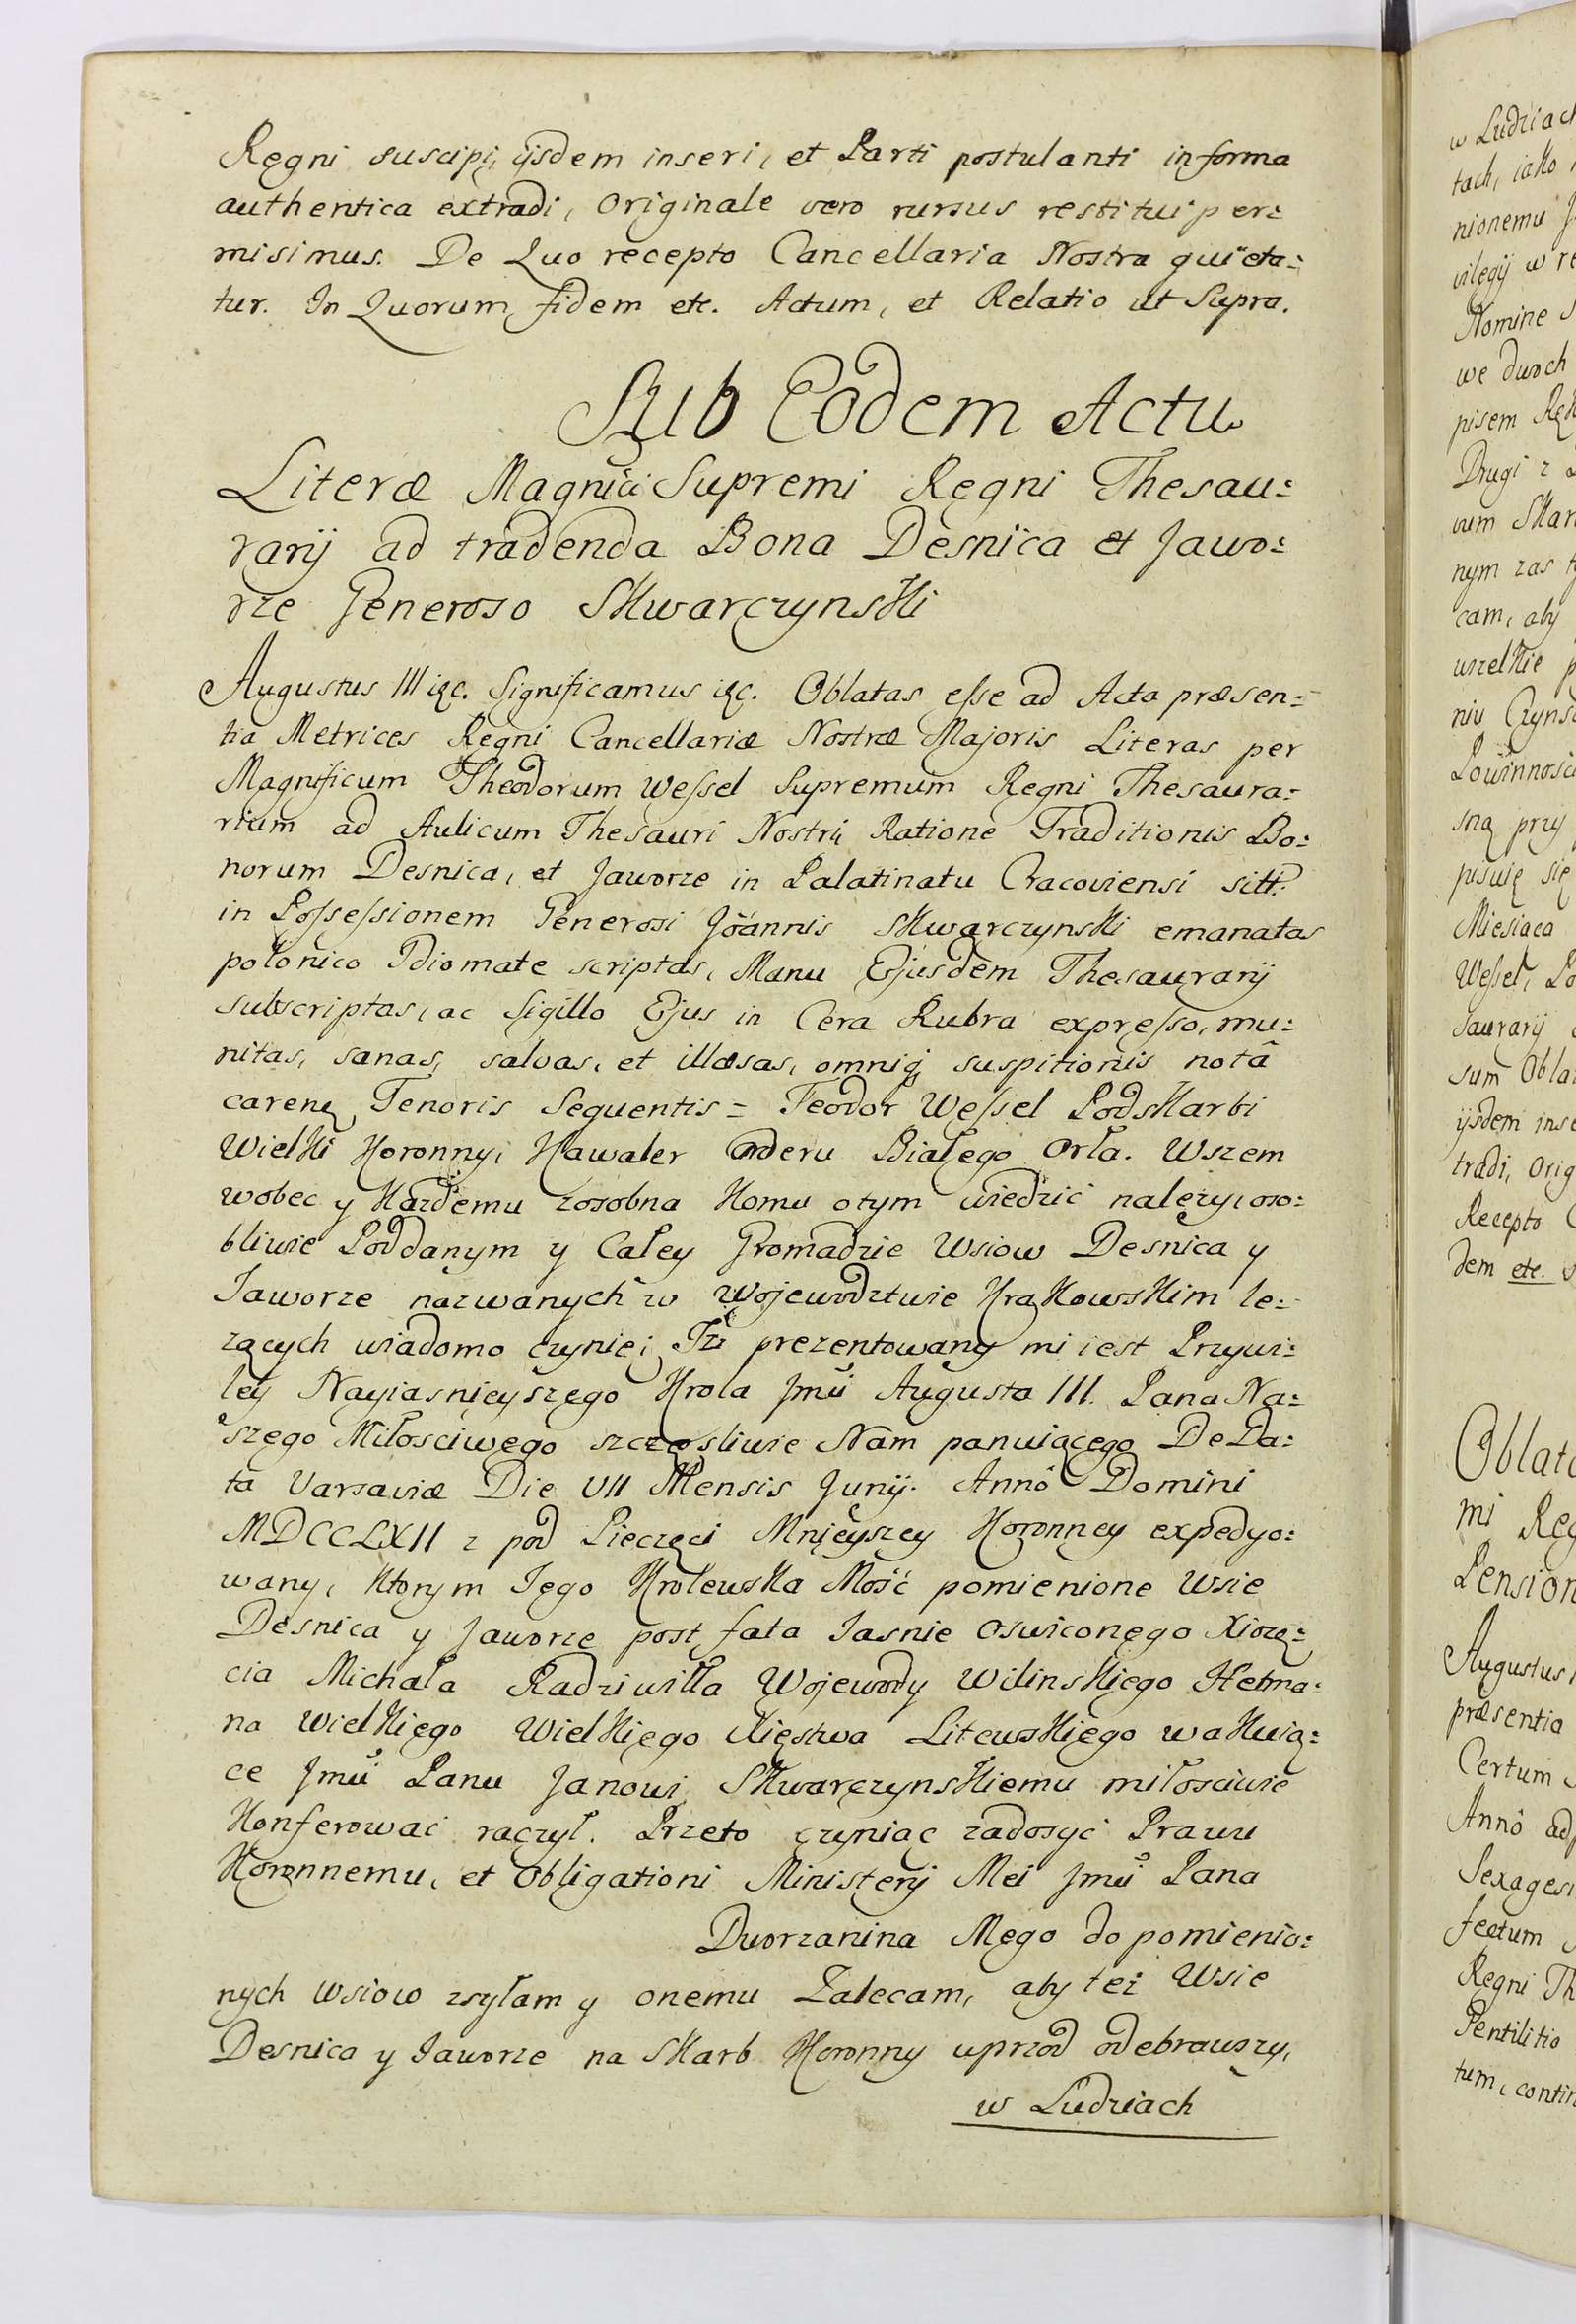 Regni suscipi, ijsdem inseri, et Parti postulanti in forma
authentica extradi, Originale vero rursus restitui per=
misimus. De Quo recepto Cancellaria Nostra quieta=
tur. In Quorum fidem etc. Actum, et Relatio ut Supra.
Sub Eodem Actu
Literæ Magnĩci Supremi Regni Thesau=
rarij ad tradenda Bona Desnica et Jawo=
rze Generoso Skwarczynski
Augustus III &c. Significamus &c. Oblatas esse ad Acta præsen=
tia Metrices Regni Cancellariæ Nostræ Majoris Literas per
Magnificum Theodorum Wessel Supremum Regni Thesaura=
rium ad Aulicum Thesauri Nostri Ratione Traditionis Bo=
norum Desnica, et Jaworze in Palatinatu Cracoviensi sitt.
in Possessionem Generosi Joannis Skwarczynski emanatas
polonico Idiomate scriptas, Manu Ejusdem Thesaurarij
subscriptas, ac Sigillo Ejus in Cera Rubra expresso, mu=
nitas, sanas, salvas, et illæsas, omniq; suspitionis notâ
caren, Tenoris Sequentis = Teodor Wessel Podskarbi
Wielki Koronny, Kawaler Orderu Białego Orła. Wszem
wobec y Kazdemu zosobna Komu o tym wiedzić nalezy, oso=
bliwie Poddanym y Całey Gromadzie Wsiow Desnica y
Jaworze nazwanych w Wojewodztwie Krakowskim le=
zących wiadomo czynię; Iż prezentowany mi iest Przywi=
ley Nayiasnieyszego Krola Jmci Augusta III. Pana Na=
szego Miłosciwego szczęsliwie Nam panuiącego De Da=
ta Varsaviæ Die VII Mensis Junij. Annô Domini
MDCCLXII z pod Pieczęci Mnieyszey Koronney expedyo=
wany, Ktorym Jego Krolewska Mość pomienione Wsie
Desnica y Jaworze post fata Jasnie Oswiconego Xiożę=
cia Michała Radziwiłła Wojewody Wilinskiego Hetma=
na Wielkiego Wielkiego Xięstwa Litewskiego wakuią=
ce Jmci Panu Janowi Skwarczynskiemu miłosciwie
Konferować raczył. Przeto czyniąc zadosyć Prawu
Koronnemu, et Obligationi Ministerij Mei Jmci Pana
Dworzanina Mego do pomienio=
nych Wsiow zsyłam y onemu Zalecam, aby teź Wsie
Desnica y Jaworze na Skarb Koronny uprzod odebrawszy,
w Ludziach
w Ludziach
tach, iako
nionemu
vilegij w
Nomine
we dwoch
pisem
Drugi z
vum
nym zas
cam, aby
wszelkie
niu
sną przy
pisuię się
Miesiąca
Wessel,
saurarij
sum
ijsdem
tradi,
Recepto
dem etc.
mi
Augustus
præsentia
Certum
Annô
fectum
Regni
Gentilitio
tum,